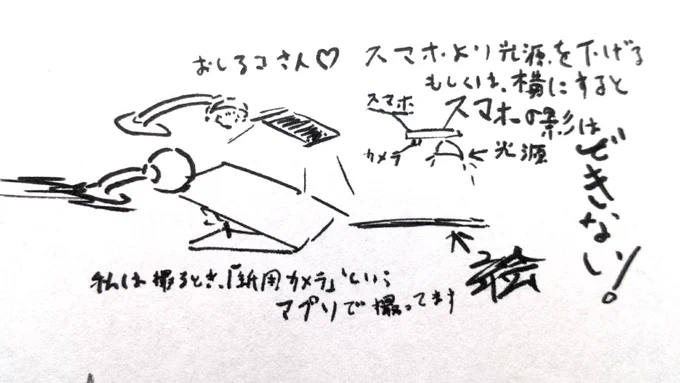 おしるこさん♡
スマホより光源を下げる
もしくは、横にすると
スマホの影は
できない!
スマホ
カメラ
光源
絵
私は撮るとき、「紙用カメラ」という
アプリで撮ってます